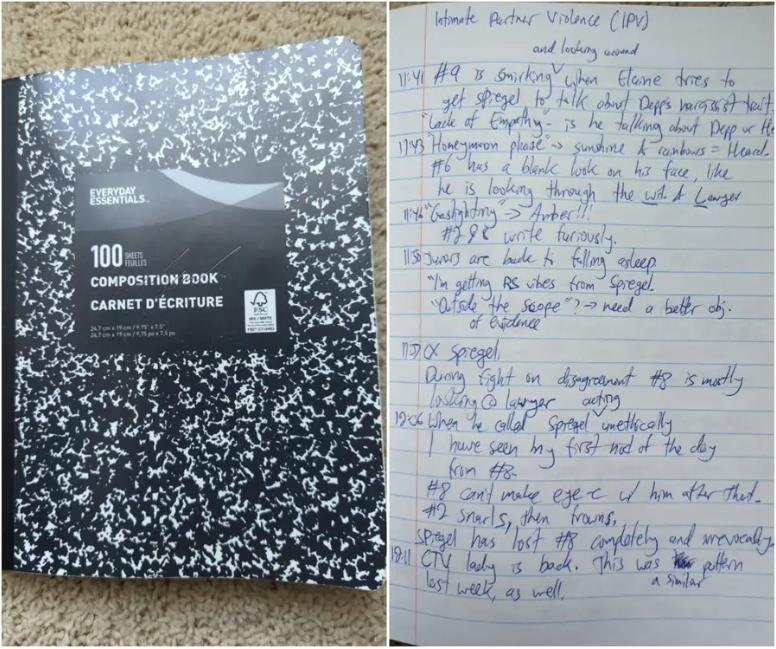 EVERYDAY
ESSENTIALS
100 SHEETS
FEUILLES
COMPOSITION BOOK
CARNET D'ÉCRITURE
24.7 cm x 19 cm / 9.75" x 7.5"
24,7 cm x 19 cm / 9,75 po x 7,5 po
FSC
Intimate Partner Violence (IPV)
and looking around
11:41 #9 is smirking when Elaine tries to
get spiegel to talk about Depp's narcissist trait
"Lack of Empathy - is he talking about Depp or
11:43 "Honeymoon phase" → sunshine & rainbows = Heard.
#6 has a blank look on his face, like
he is looking through the wit. & Lawyer
11:46 "Gaslighting" → Amber!!!
#2 98 write furiously.
11:50 Jurors are back to falling asleep.
"I'm getting RS vibes from Spiegel.
"Outside the scope"? → need a better obj.
of Evidence
CX Spiegel.
During fight on disagreement #8 is mostly
looking @ lawyer
acting
12:06 When he called Spiegel unethically
I have seen my first nod of the day
from #8.
#8 can't make eye-c w/ him after that.
#2 snarls, then frowns.
Spiegel has lost #8 completely and irrevocably
12:11 CTV lady is back. This was pattern
a similar
last week, as well.